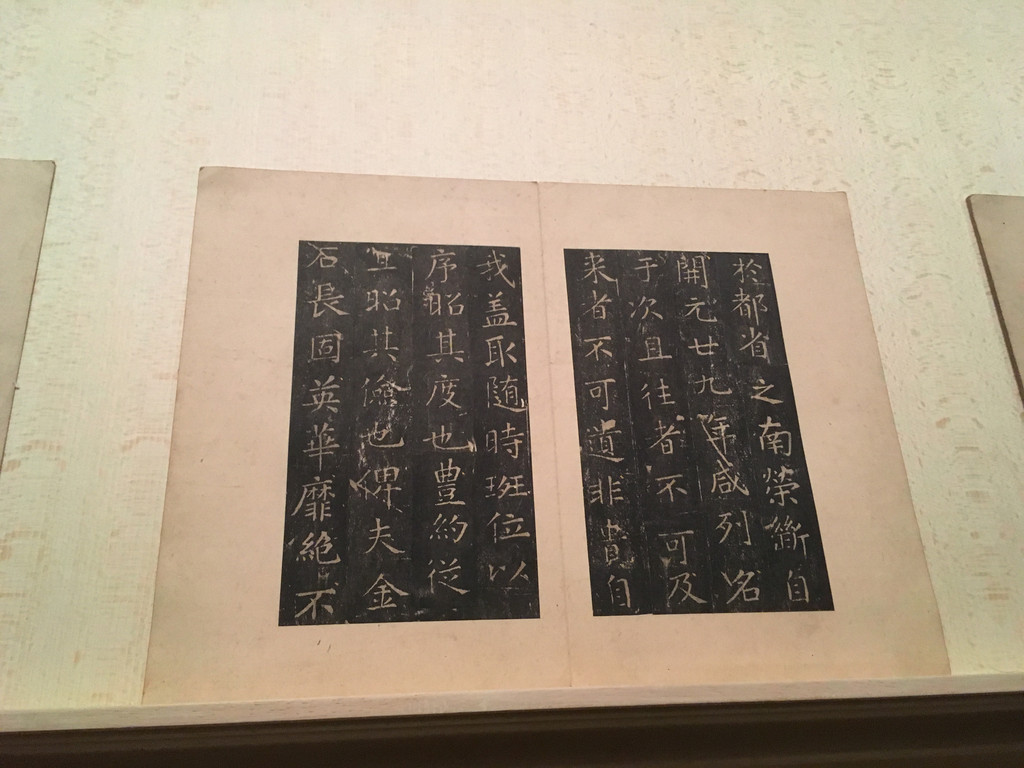 扵都省之南榮斷自
開元廿九年咸列名
于次且往者不可及
来者不可道非貴自
我盖取随時班位以
序昭其度也豊約従
宜昭其儉也俾夫金
石長固英華靡絶不